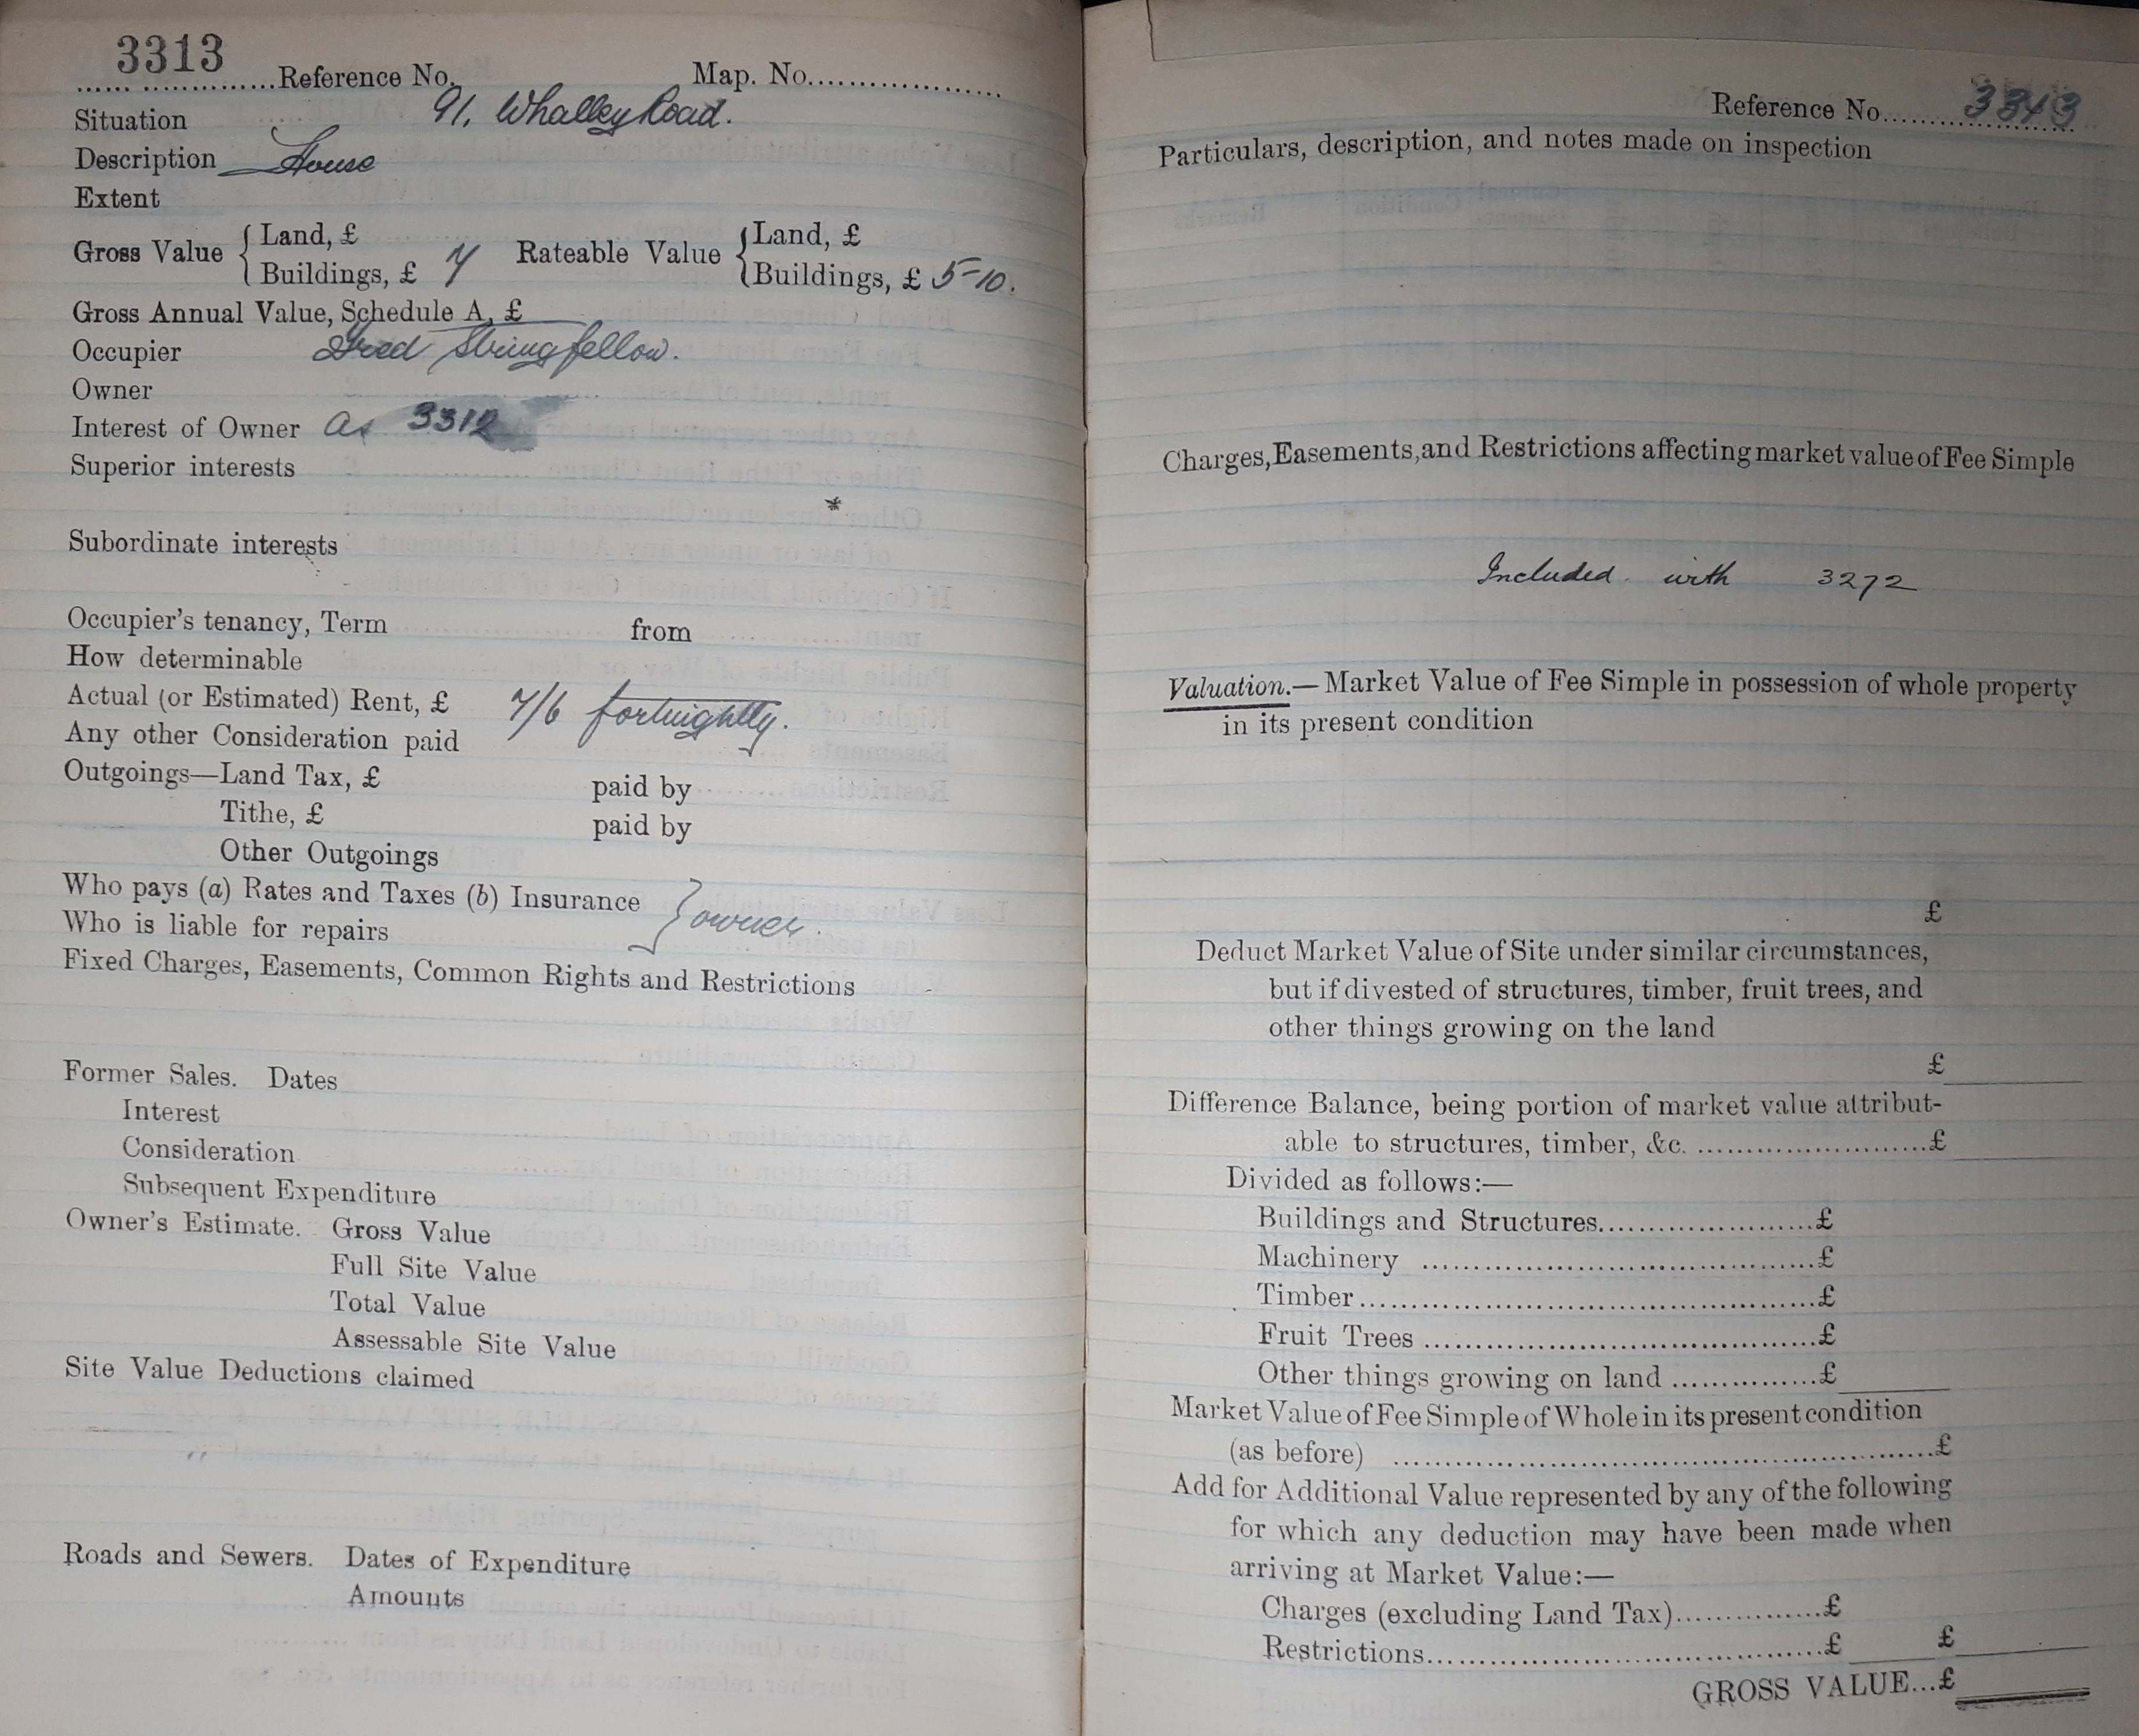 3313
Reference No. Map. No.
Situation 91, Whalley Road.
Description House
Extent
Gross Value { Land, £ Rateable Value { Land, £
Buildings, £ 7 Buildings, £ 5-10.
Gross Annual Value, Schedule A, £
Occupier Fred Stringfellow.
Owner
Interest of Owner As 3312
Superior interests
*
Subordinate interests
Occupier's tenancy, Term from
How determinable
Actual (or Estimated) Rent, £ 7/6 fortnightly.
Any other Consideration paid
Outgoings—Land Tax, £ paid by
Tithe, £ paid by
Other Outgoings
Who pays (a) Rates and Taxes (b) Insurance } owner.
Who is liable for repairs
Fixed Charges, Easements, Common Rights and Restrictions
Former Sales. Dates
Interest
Consideration
Subsequent Expenditure
Owner's Estimate. Gross Value
Full Site Value
Total Value
Assessable Site Value
Site Value Deductions claimed
Roads and Sewers. Dates of Expenditure
Amounts
Reference No.
Particulars, description, and notes made on inspection
Charges, Easements, and Restrictions affecting market value of Fee Simple
Included with 3272
Valuation.—Market Value of Fee Simple in possession of whole property
in its present condition
£
Deduct Market Value of Site under similar circumstances,
but if divested of structures, timber, fruit trees, and
other things growing on the land
£
Difference Balance, being portion of market value attribut-
able to structures, timber, &c. £
Divided as follows:—
Buildings and Structures £
Machinery £
Timber £
Fruit Trees £
Other things growing on land £
Market Value of Fee Simple of Whole in its present condition
(as before) £
Add for Additional Value represented by any of the following
for which any deduction may have been made when
arriving at Market Value:—
Charges (excluding Land Tax) £
Restrictions £ £
GROSS VALUE...£